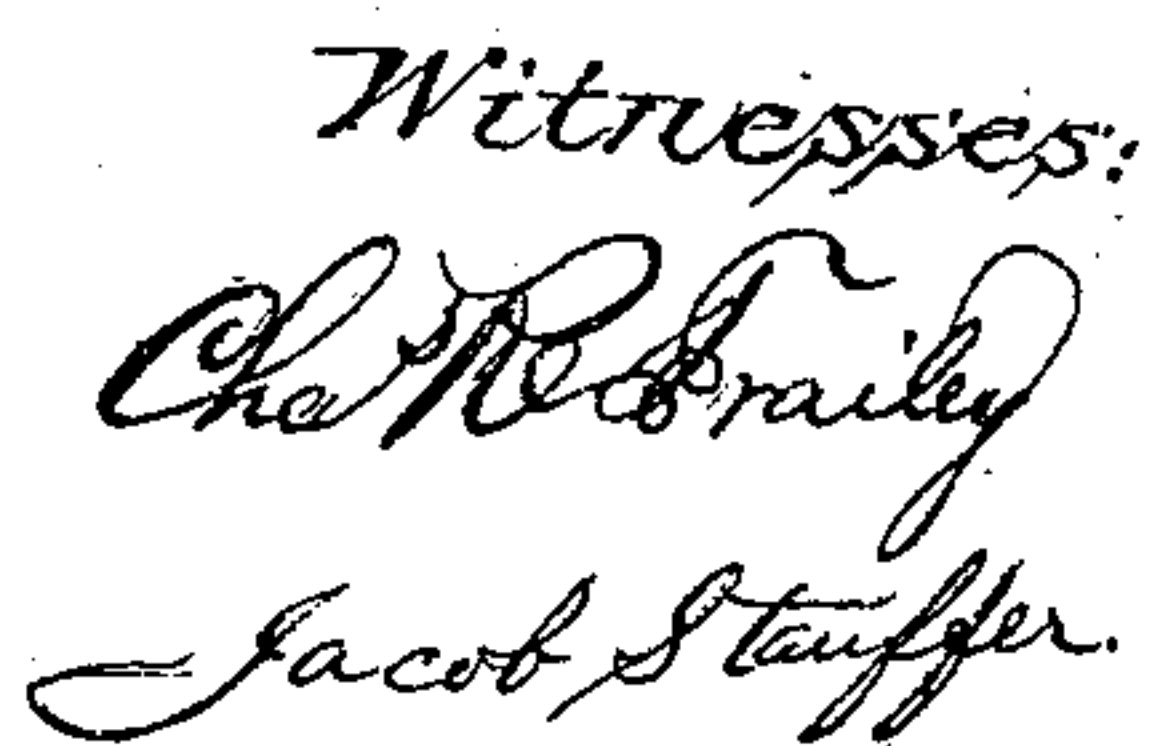 Witnesses:
Chas R Frailey
Jacob Stauffer.